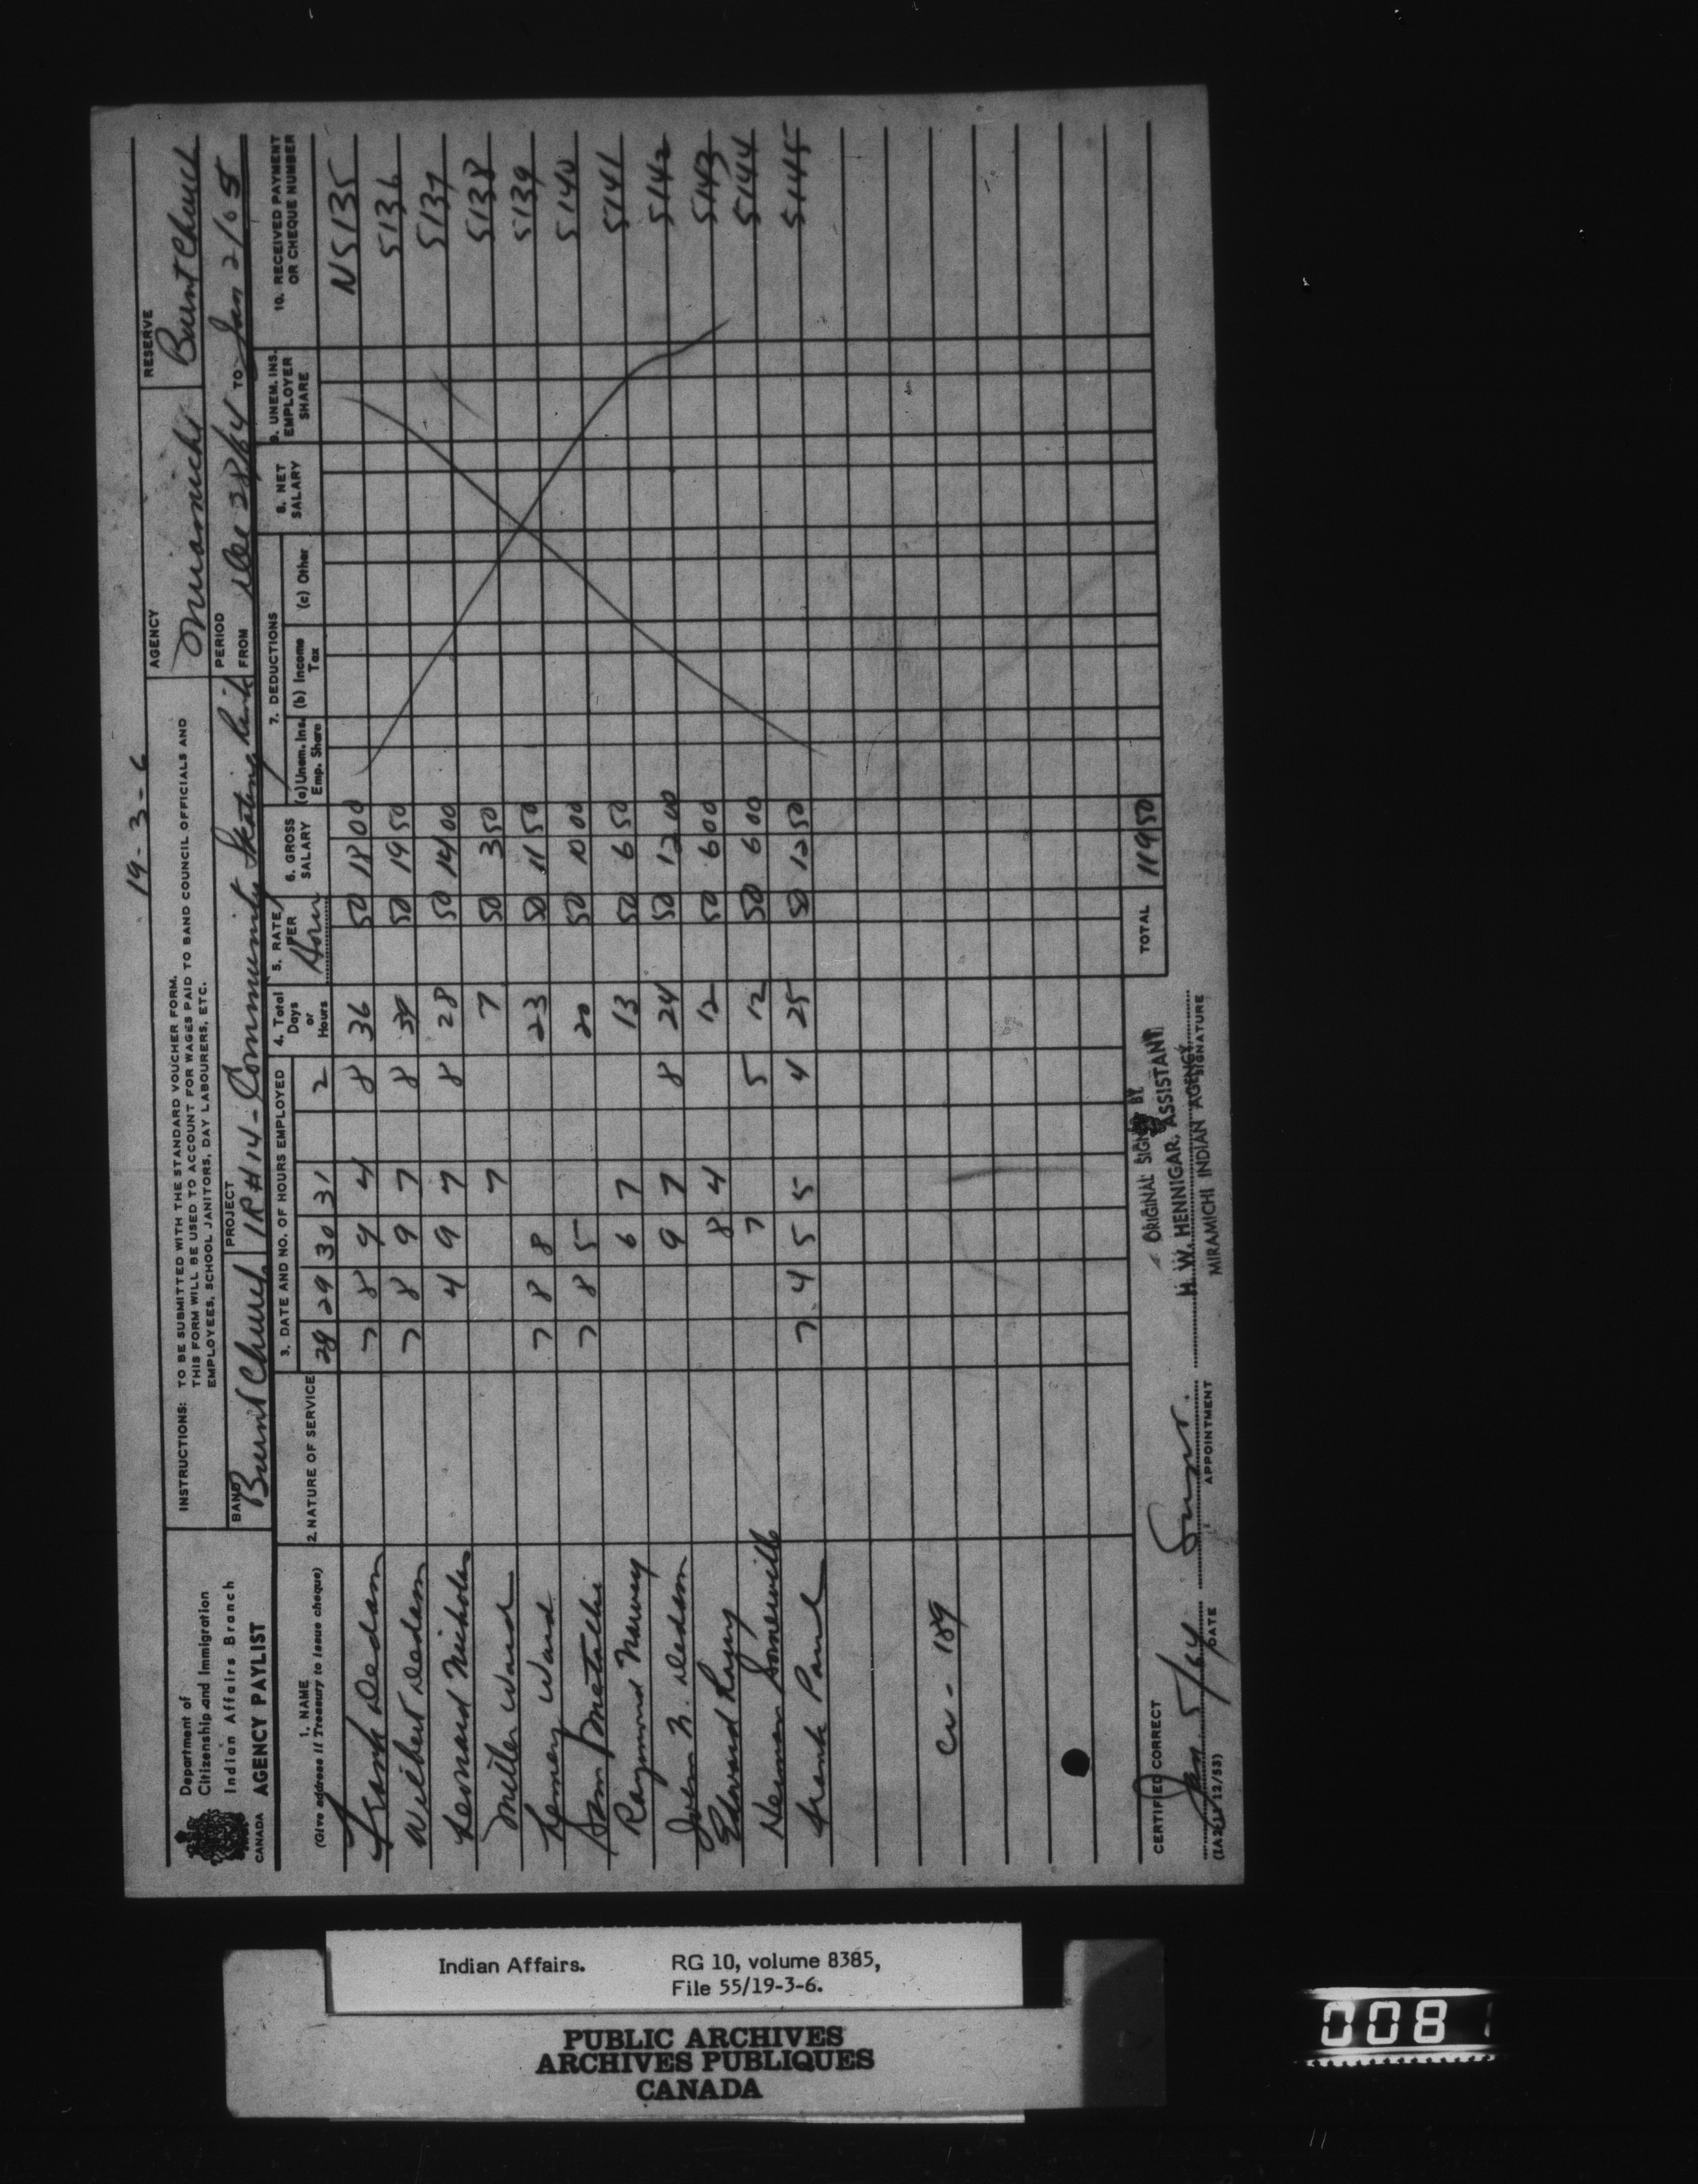 19-3-6
Department of
Citizenship and Immigration
Indian Affairs Branch
CANADA AGENCY PAYLIST
INSTRUCTIONS: TO BE SUBMITTED WITH THE STANDARD VOUCHER FORM.
THIS FORM WILL BE USED TO ACCOUNT FOR WAGES PAID TO BAND COUNCIL OFFICIALS AND
EMPLOYEES, SCHOOL JANITORS, DAY LABOURERS, ETC.
AGENCY Miramichi
RESERVE Burnt Church
BAND Burnt Church
PROJECT IR #14 - Community Skating Rink
PERIOD FROM Dec 28/64 TO Jan 2/65
1. NAME
(Give address if Treasury to issue cheque)
2. NATURE OF SERVICE
3. DATE AND NO. OF HOURS EMPLOYED
28 29 30 31 2
4. Total Days or Hours
5. RATE PER Hour
6. GROSS SALARY
7. DEDUCTIONS
(a) Unem. Ins. Emp. Share
(b) Income Tax
(c) Other
8. NET SALARY
9. UNEM. INS. EMPLOYER SHARE
10. RECEIVED PAYMENT OR CHEQUE NUMBER
Frank Dedam 7 8 9 4 8 36 50 18 00 N5135
Wilbert Dedam 7 8 9 7 8 39 50 19 50 5136
Leonard Nicholas 4 9 7 8 28 50 14 00 5137
Miller Ward 7 7 50 3 50 5138
Henry Ward 7 8 8 23 50 11 50 5139
Sam Metallic 7 8 5 20 50 10 00 5140
Raymond 6 7 13 50 6 50 5141
N. Dedam 9 7 8 24 50 12 00 5142
Edward 8 4 12 50 6 00 5143
Herman Somerville 7 5 12 50 6 00 5144
Frank Paul 7 4 5 5 4 25 50 12 50 5145
189
TOTAL 119 50
CERTIFIED CORRECT
Jan 5/64
DATE
APPOINTMENT
ORIGINAL SIGNED BY
H. W. HENNIGAR, ASSISTANT
MIRAMICHI INDIAN AGENCY
SIGNATURE
Indian Affairs. RG 10, volume 8385,
File 55/19-3-6.
PUBLIC ARCHIVES
ARCHIVES PUBLIQUES
CANADA
0081